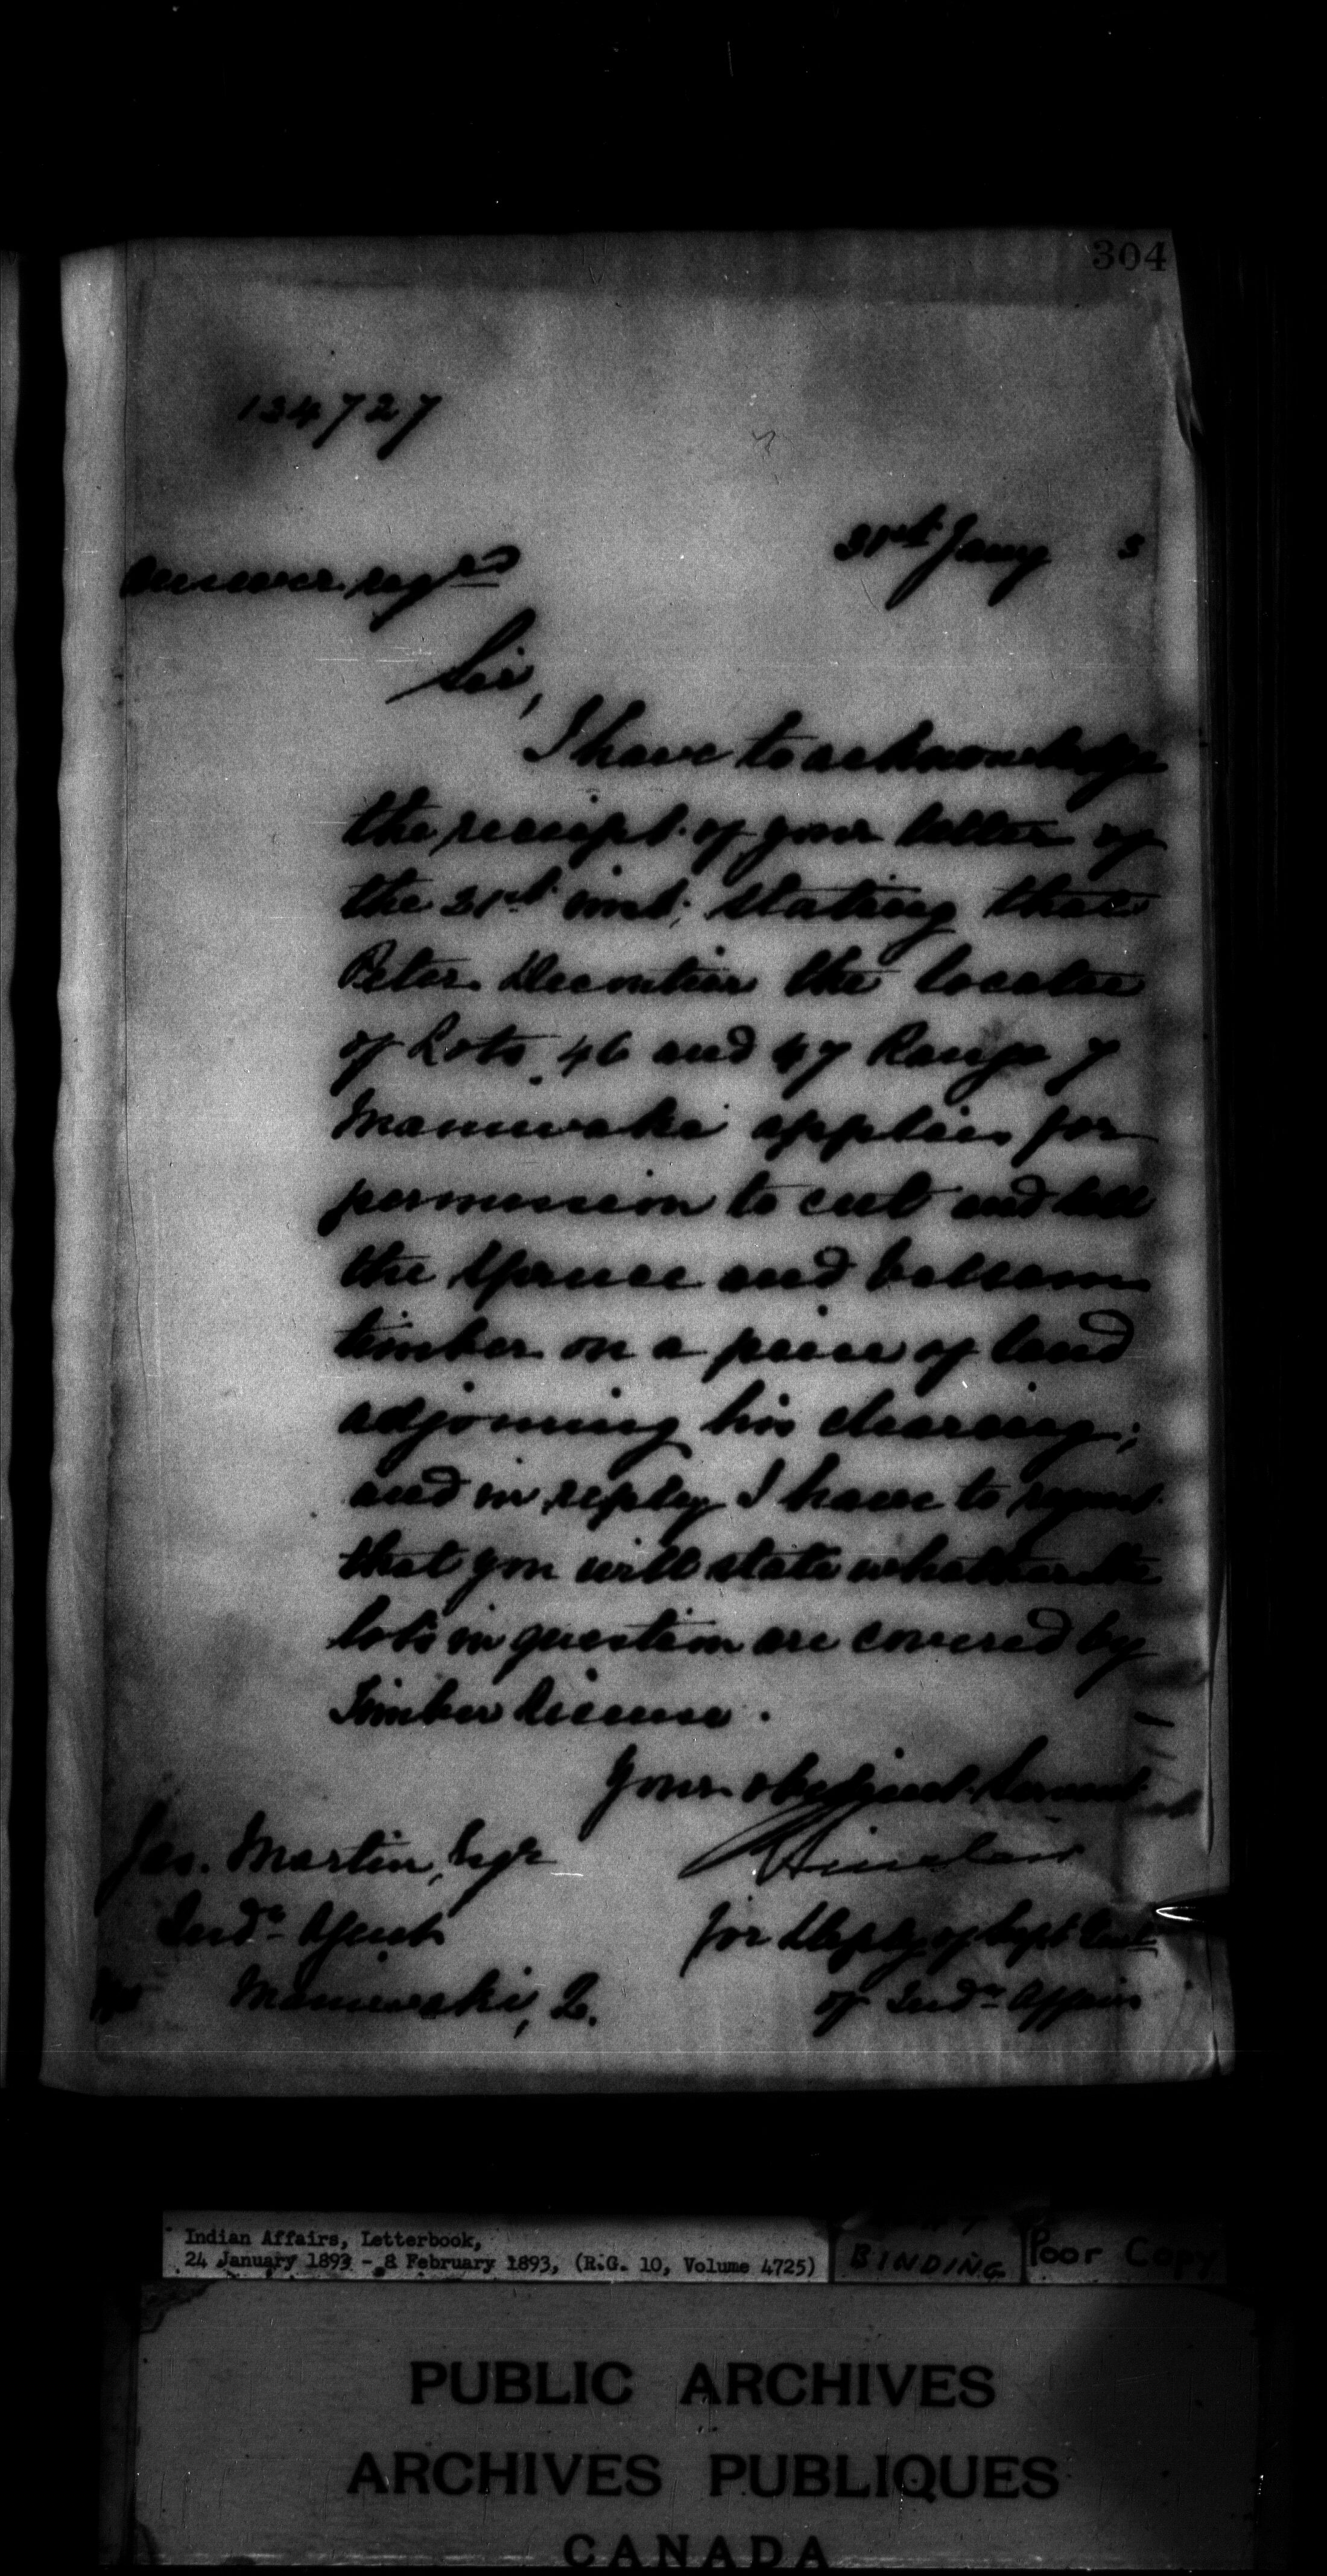 304
134727
31st Jany 3
Answer reqd
Sir,
I have to acknowledge
the receipt of your letter of
the 21st inst; stating that
Peter Decontier the locatee
of Lots 46 and 47 Range 7
Maniwaki applies for
permission to cut and sell
the Spruce and balsam
timber on a piece of land
adjoining his clearing;
and in reply I have to request
that you will state whether the
lots in question are covered by
Timber License.
Your obedient Servant
Jas. Martin, Esqr
Indn Agent
Maniwaki, Q.
for Deputy of Supt Genl
of Indn Affairs
Indian Affairs, Letterbook,
24 January 1893 - 8 February 1893, (R.G. 10, Volume 4725)
BINDING
Poor Copy
PUBLIC ARCHIVES
ARCHIVES PUBLIQUES
CANADA